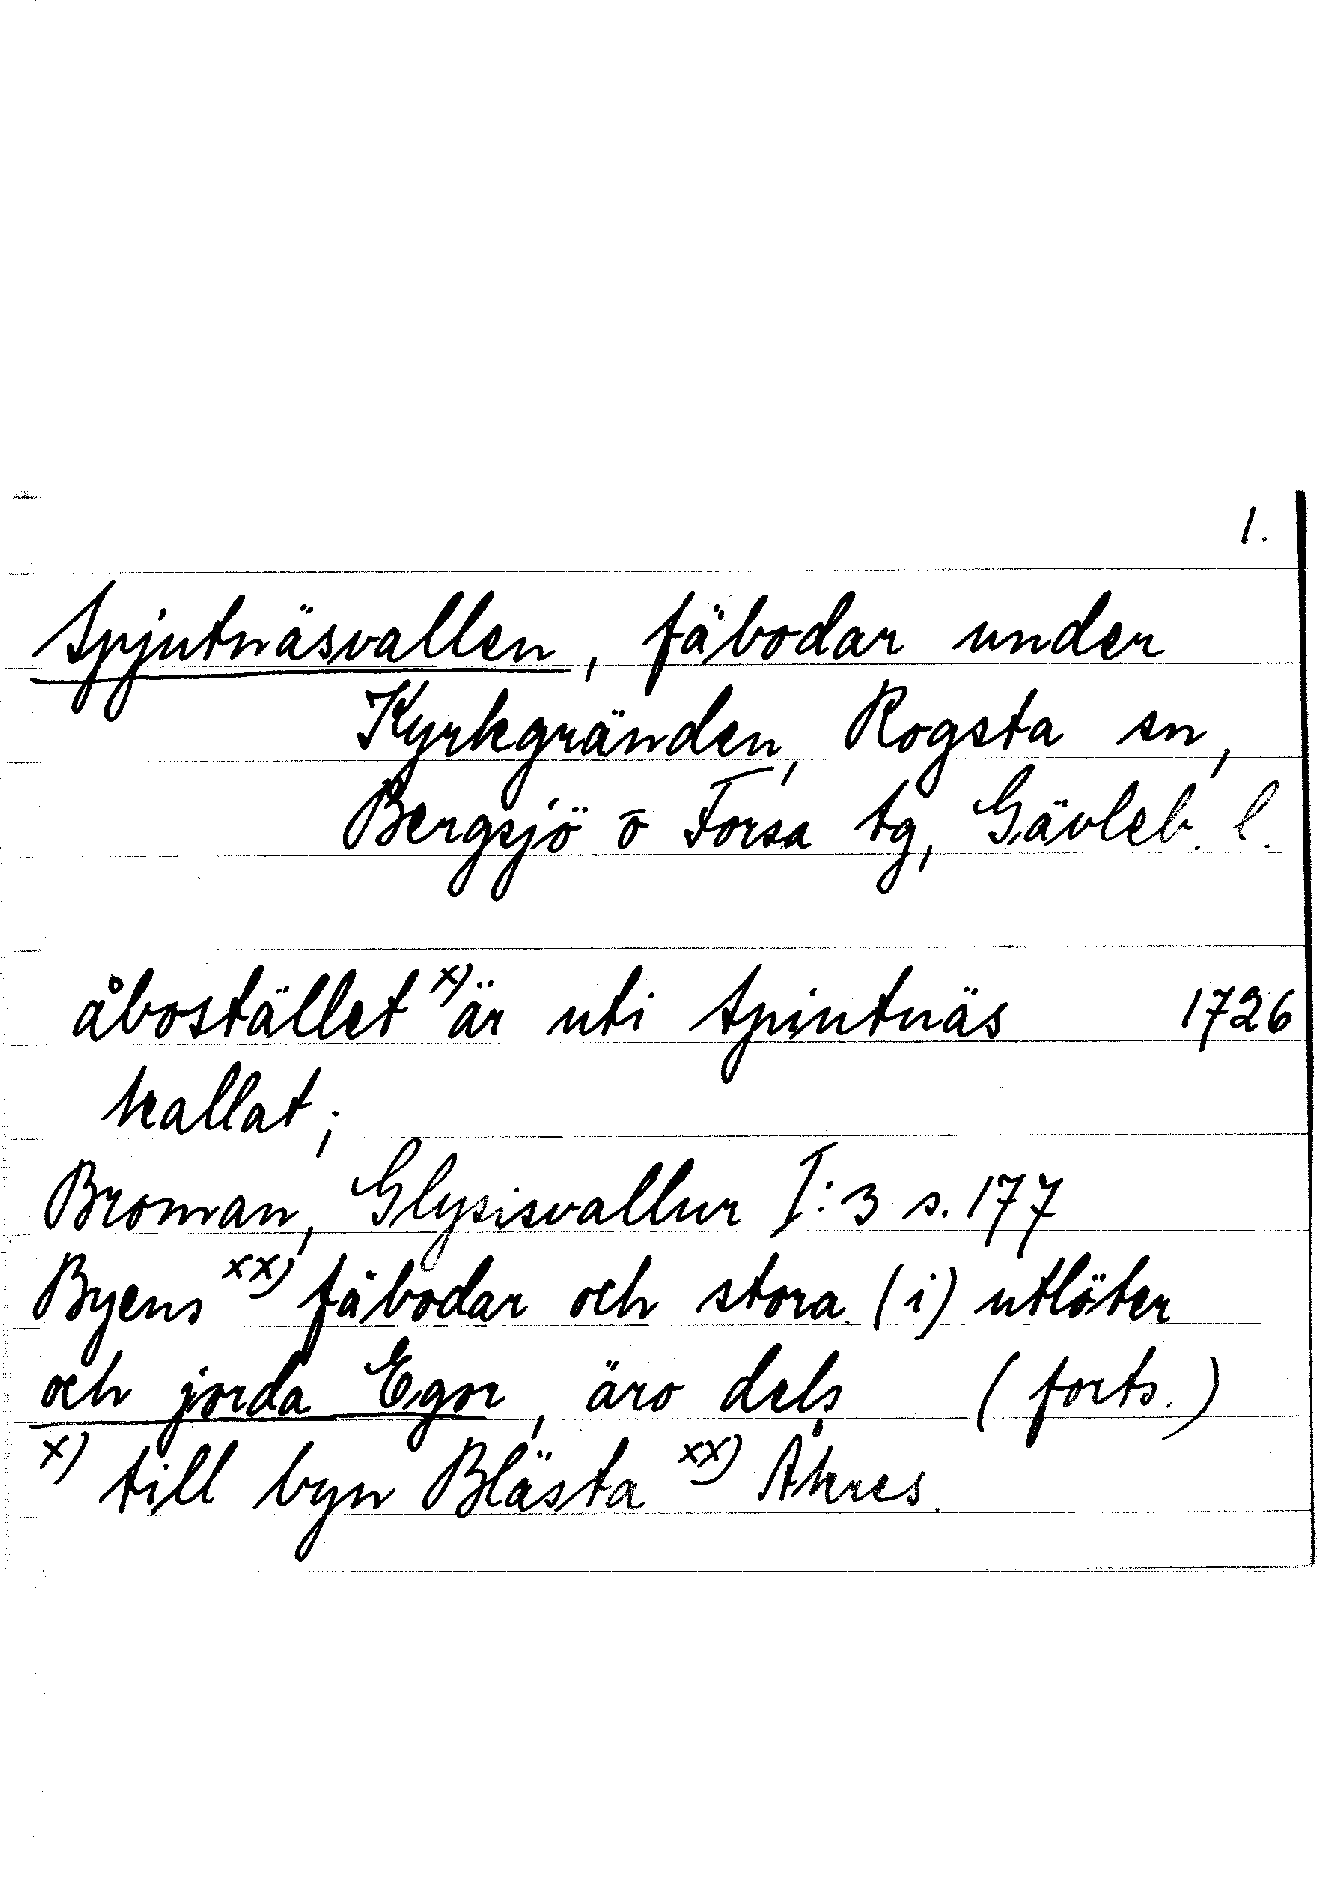 1.
Spjutnäsvallen, fäbodar under
Kyrkgränden, Rogsta sn,
Bergsjö o Forsa tg, Gävleb. l.
åbostället x) är uti Spiutnäs 1726
kallat;
Broman, Glysisvallur I:3 s. 177
Byens xx) fäbodar och stora (i) utlöter
och jorda Egor, äro dels (forts.)
x) till byn Blästa xx) Åkres.